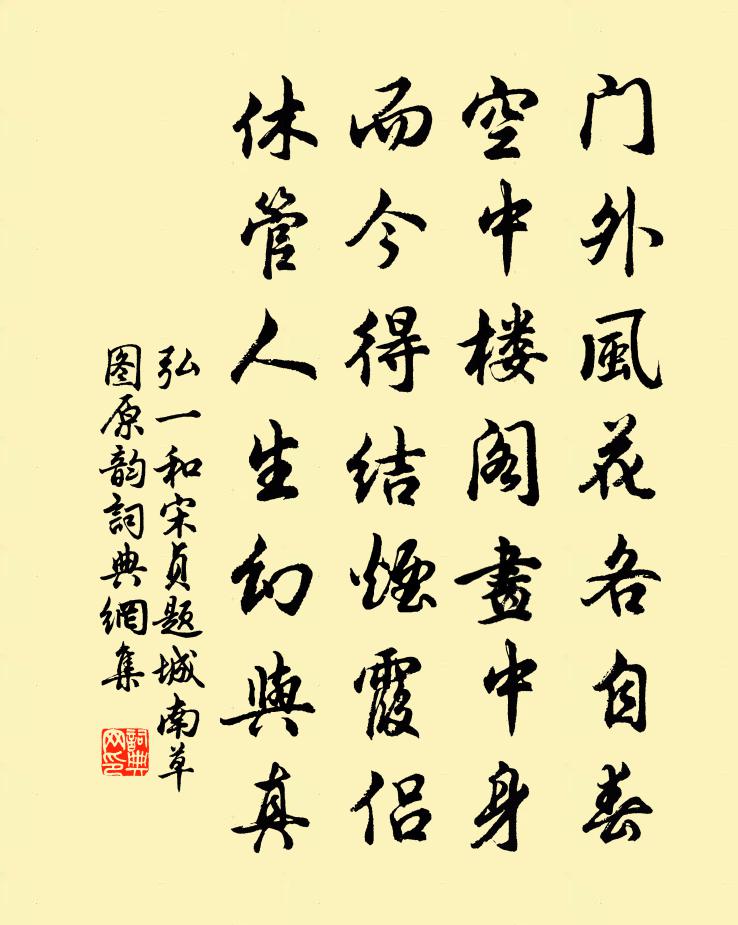 门外風花各自春
空中楼阁畫中身
而今得结煙霞侣
休管人生幻與真
弘一和宋贞题城南草
图原韵詞典網集
詞典网印